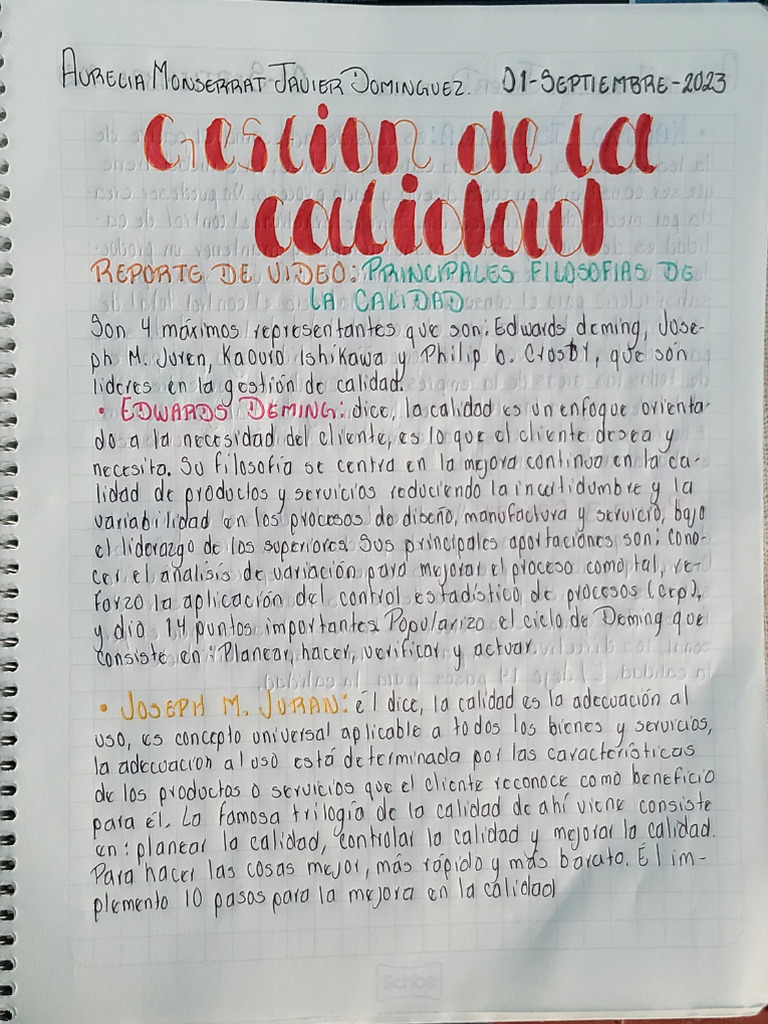 AURELIA MONSERRAT JAVIER DOMINGUEZ. 01-SEPTIEMBRE-2023
Gestion de la
calidad
REPORTE DE VIDEO: PRINCIPALES FILOSOFIAS DE
LA CALIDAD
Son 4 máximos representantes que son: Edwards deming, Jose-
ph M. Juren, Kaouro Ishikawa y Philip b. Crosby, que son
lideres en la gestión de calidad.
• EDWARDS DEMING: dice, la calidad es un enfoque orienta-
do a la necesidad del cliente, es lo que el cliente desea y
necesita. Su filosofía se centra en la mejora continua en la ca-
lidad de productos y servicios reduciendo la incertidumbre y la
variabilidad en los procesos de diseño, manufactura y servicio, bajo
el liderazgo de los superiores. Sus principales aportaciones son: cono-
cer el análisis de variación para mejorar el proceso como tal, re-
forzo la aplicación del control estadístico de procesos (cep),
y dio 14 puntos importantes. Popularizo el ciclo de Deming que
consiste en: Planear, hacer, verificar y actuar.
• JOSEPH M. JURAN: él dice, la calidad es la adecuación al
uso, es concepto universal aplicable a todos los bienes y servicios,
la adecuacion al uso está determinada por las características
de los productos o servicios que el cliente reconoce como beneficio
para él. La famosa trilogía de la calidad de ahí viene consiste
en: planear la calidad, controlar la calidad y mejorar la calidad.
Para hacer las cosas mejor, más rápido y más barato. Él im-
plemento 10 pasos para la mejora en la calidad
Scribe